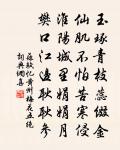 玉琢青枝蕊綴金
仙肌不怕苦寒侵
淮陽城里娟娟月
樊口江邊耿耿參
蘇軾憶黃州梅花五絕
詞典網